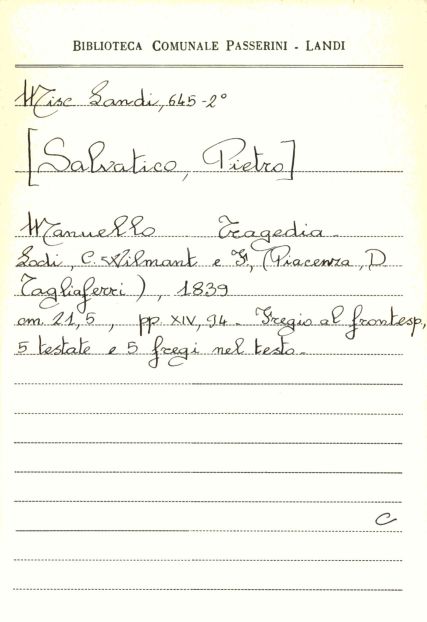 BIBLIOTECA COMUNALE PASSERINI - LANDI
Misc Landi, 645-2°
[Salvatico, Pietro]
Manuello Tragedia -
Lodi, C. Wilmant e F, (Piacenza, D
Tagliaferri), 1839
cm 21,5, pp. XIV, 94 - Fregio al frontesp,
5 testate e 5 fregi nel testo -
C